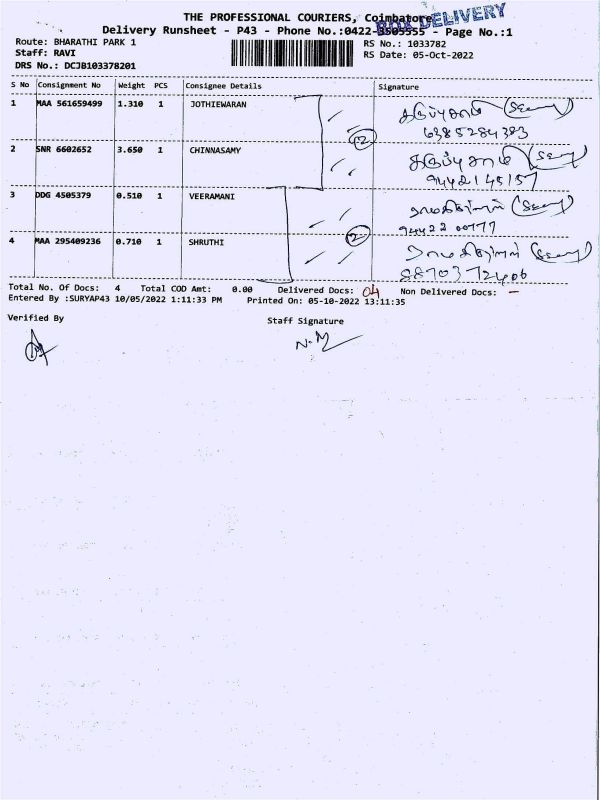 THE PROFESSIONAL COURIERS, Coimbatore
BOX DELIVERY
Delivery Runsheet - P43 - Phone No.:0422-3505555 - Page No.:1
Route: BHARATHI PARK 1
RS No.: 1033782
Staff: RAVI
RS Date: 05-Oct-2022
DRS No.: DCJB103378201
S No Consignment No Weight PCS Consignee Details Signature
1 MAA 561659499 1.310 1 JOTHIEWARAN
6385284383
2 SNR 6602652 3.650 1 CHINNASAMY
9442145157
3 DDG 4505379 0.510 1 VEERAMANI
94422 00777
4 MAA 295409236 0.710 1 SHRUTHI
8870372406
Total No. Of Docs: 4 Total COD Amt: 0.00 Delivered Docs: 04 Non Delivered Docs: -
Entered By :SURYAP43 10/05/2022 1:11:33 PM Printed On: 05-10-2022 13:11:35
Verified By Staff Signature
N.M